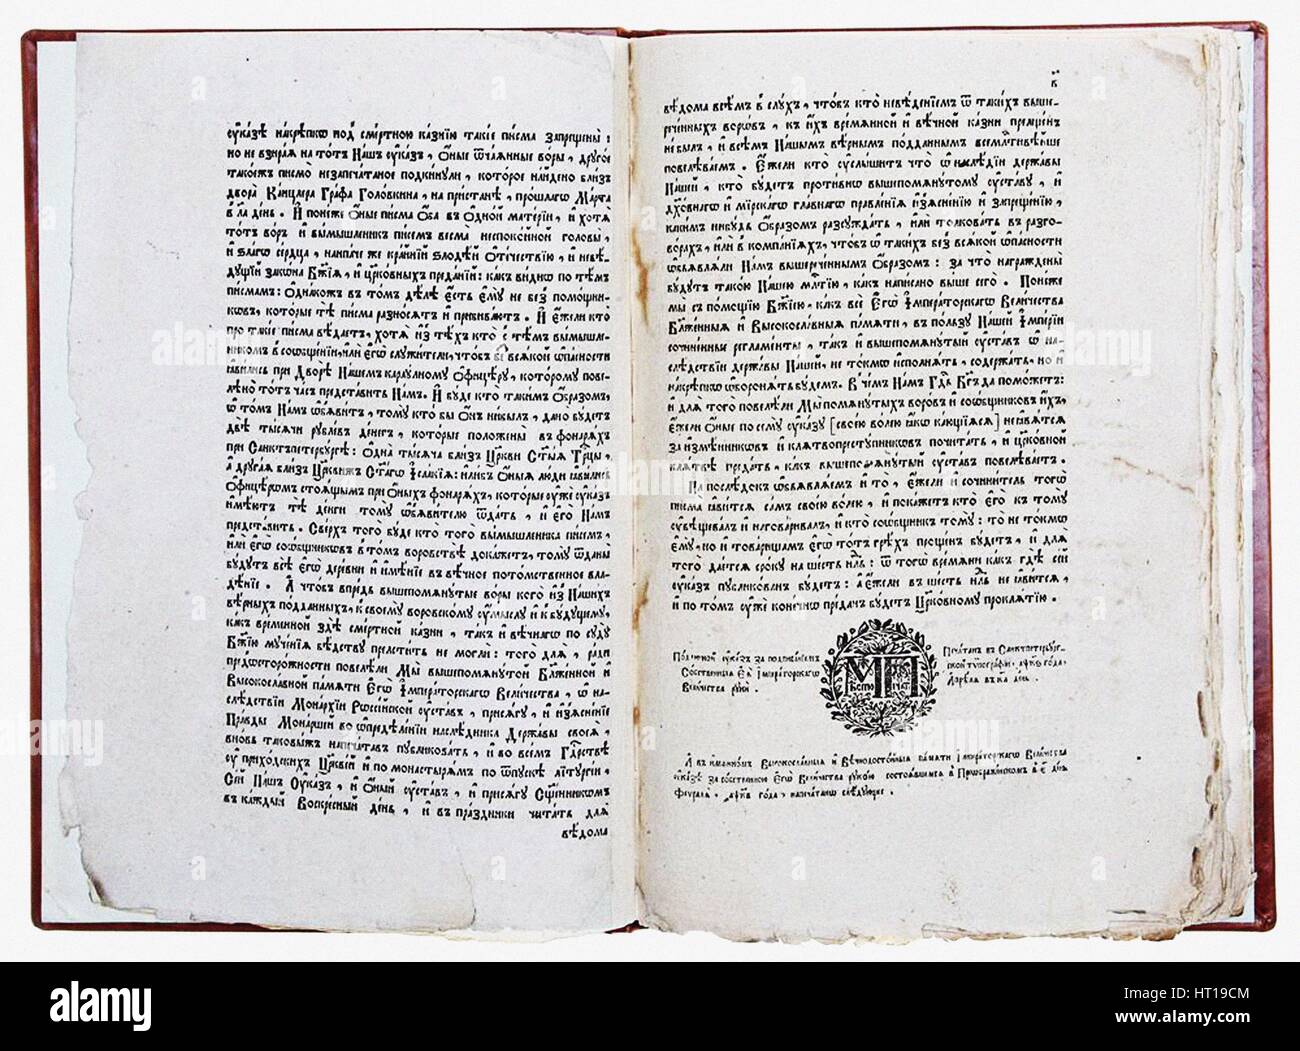 ᲂу҆казѣ накрѣпкѡ под̾ смертною казнїю такїе писма запрещены :
но не взирая на тотъ Нашъ ᲂу҆казъ , ѻ҆ные ѿчаянные воры , другое
такоежъ писмо незапечатаное подкинули , которое найдено близь
двора Канцлера Графа Головкина , на пристанѣ , прошлагѡ Марта
день . И҆ понеже ѻ҆ные писма ѻ҆ба въ ѻ҆дной матерїи , и҆ хотя
тотъ воръ и҆ вымышленикъ писемъ весма неспокойной головы ,
и҆ ѕлагѡ сердца , наипаче же крайнїй ѕлодѣй ѻ҆течествїю , и҆ невѣ-
дущїй закона Бж҃їя , и҆ церковныхъ преданїй : какъ видимо по тѣмъ
писмамъ : ѻ҆днакожъ въ томъ дѣлѣ є҆сть є҆мꙋ не без̾ помощни-
ковъ , которые тѣ писма разносятъ и҆ прибиваютъ . И҆ є҆жели кто
про такїе писма вѣдаетъ , хотя и҆з̾ тѣхъ кто с тѣмъ вымышле-
никомъ в̾ соѡбщенїи , или є҆гѡ служители , чтобъ без̾ всякой ѡ҆пасности
явились при Дворѣ Нашемъ караулному Ѻ҆фицеру , которому пове-
лѣно тотъ часъ представить Намъ . И҆ буде кто такимъ ѻ҆бразомъ ,
ѡ҆ томъ Намъ ѡ҆б̾явитъ , тому кто бы ѻ҆нъ ни былъ , дано будетъ
двѣ тысячи рублевъ денегъ , которые положены въ фонаряхъ
при Санктъпетербургѣ : ѻ҆дна тысяча близь Цр҃кви Ст҃ыя Трⷪ҇цы ,
а҆ другая близь Цр҃квижъ Ст҃агѡ І҆саакїя : и҆ либъ ѻ҆ныя люди явились
Ѻ҆фицерѡмъ стоящымъ при ѻ҆ныхъ фонаряхъ , которые ᲂу҆же ᲂу҆казъ
и҆мѣютъ тѣ денги тому ѡ҆б̾явителю ѿдать , и҆ є҆гѡ Намъ
представить . Сверхъ того буде кто того вымышленика писемъ ,
и҆ли є҆гѡ соѡбщниковъ в томъ воровствѣ докажетъ , тому ѿданы
будутъ всѣ є҆гѡ деревни и҆ и҆мѣнїе въ вѣчное потомственное вла-
дѣнїе . А҆ чтобъ впредь вышепомянутые воры кого и҆з̾ Нашихъ
вѣрныхъ подданныхъ , къ своему воровскому ᲂу҆мыслу и҆ къ будущему ,
какъ временной здѣ смертной казни , такъ и҆ вѣчнагѡ по суду
Бж҃їю мученїя вѣдству прелстить не могли : того для , ради
предосторожности повелѣли Мы вышепомянутой Бл҃женной и҆
Высокославной памяти Є҆гѡ І҆мператорскагѡ Величества , ѡ҆ на-
слѣдствїи Монархїи Рѡссїйской ᲂу҆ставъ , присягу , и҆ и҆з̾ясненїе
Правды Монаршей во ѡ҆предѣленїи наслѣдника Державы своея ,
вновь таковыжъ напечатавъ публиковать , и҆ во всемъ Гдⷭ҇рствѣ
ᲂу҆ приходскихъ Цр҃квей и҆ по монастырямъ по ѿпускѣ лїтургїи ,
Сей Нашъ ᲂу҆казъ , и҆ ѻ҆ный ᲂу҆ставъ , и҆ присягу Сщ҃енникомъ
въ каждый Воскресный день , и҆ въ праздники читать для
вѣдома
вѣдома всѣмъ в̾ слухъ , чтобъ кто невѣденїемъ ѿ такихъ выше-
реченныхъ воровъ , къ и҆хъ времянной и҆ вѣчной казни прелщенъ
не былъ , и҆ всѣмъ Нашымъ вѣрнымъ подданнымъ всемлⷭ҇тивѣйше
повелѣваемъ . Є҆жели кто ᲂу҆слышитъ что ѡ҆ наслѣдїи державы
Нашей , кто будетъ противно вышепомянутому ᲂу҆ставу , и҆
дх҃овнагѡ и҆ мїрскагѡ главнагѡ правленїя и҆з̾ясненїю и҆ запрещенїю ,
какимъ нибудь ѻ҆бразомъ разсуждать , и҆ли толковать въ разго-
ворахъ , и҆ли в̾ компанїяхъ , чтобъ ѡ҆ такихъ без̾ всякой ѡ҆пасности
ѡ҆б̾являли Намъ вышереченнымъ ѻ҆бразомъ : за что награждены
будутъ такою Нашею млⷭ҇тїю , какъ написано выше сего . Понеже
мы съ помощїю Бж҃їею , какъ всѣ Є҆гѡ І҆мператорскагѡ Величества
Бл҃женныя и҆ Высокославныя памяти , въ пользу Нашей І҆мперїи
сочиненные регламенты , такъ и҆ вышепомянутый ᲂу҆ставъ ѡ҆ на-
слѣдствїи державы Нашей , не токмѡ и҆сполнять , содержать , но и҆
накрѣпкѡ ѡ҆боронять будемъ . В чемъ Намъ Гдⷭ҇ь Бг҃ъ да поможетъ :
и҆ для того повелѣли Мы помянутыхъ воровъ и҆ соѡбщниковъ и҆хъ ,
є҆жели ѻ҆ные по сему ᲂу҆казу [ своею волею ꙗ҆кѡ кающїяся ] не явятся
за и҆змѣнниковъ и҆ клятвопреступниковъ почитать , и҆ церковной
клятвѣ предать , какъ вышепомянутый ᲂу҆ставъ повелѣваетъ .
На послѣдокъ ѡ҆б̾являемъ и҆ то , є҆жели и҆ сочинитель тогѡ
писма явится самъ своею волею , и҆ покажетъ кто є҆гѡ къ тому
ᲂу҆вѣщевалъ и҆ наговаривалъ , и҆ кто соѡбщникъ тому : то не токмѡ
є҆му , но и҆ товарищамъ є҆гѡ тотъ грѣхъ прощенъ будетъ , и҆ для
того дается сроку на шесть нⷣль : ѿ того времяни какъ гдѣ сей
ᲂу҆казъ публикованъ будетъ : а҆ є҆жели въ шесть нⷣль не явится ,
и҆ по томъ ᲂу҆же конечнѡ преданъ будетъ Цр҃ковному проклятїю .
Подлинной ᲂу҆казъ за подписанїемъ
Собственныя Є҆я І҆мператорскагѡ
Величества руки .
Печатанъ въ Санктъпетербур-
ской тѵпографїи , года ,
Апрѣля въ день .
А҆ въ имянномъ Высокославныя и҆ Вѣчнодостойныя памяти І҆мператорскагѡ Величества
ᲂу҆казѣ за собственною Є҆гѡ Величества рукою состоявшемся в̾ Преображенскомъ дня
Февраля , года , напечатано слѣдующее .
alamy
Image ID: HT19CM
www.alamy.com